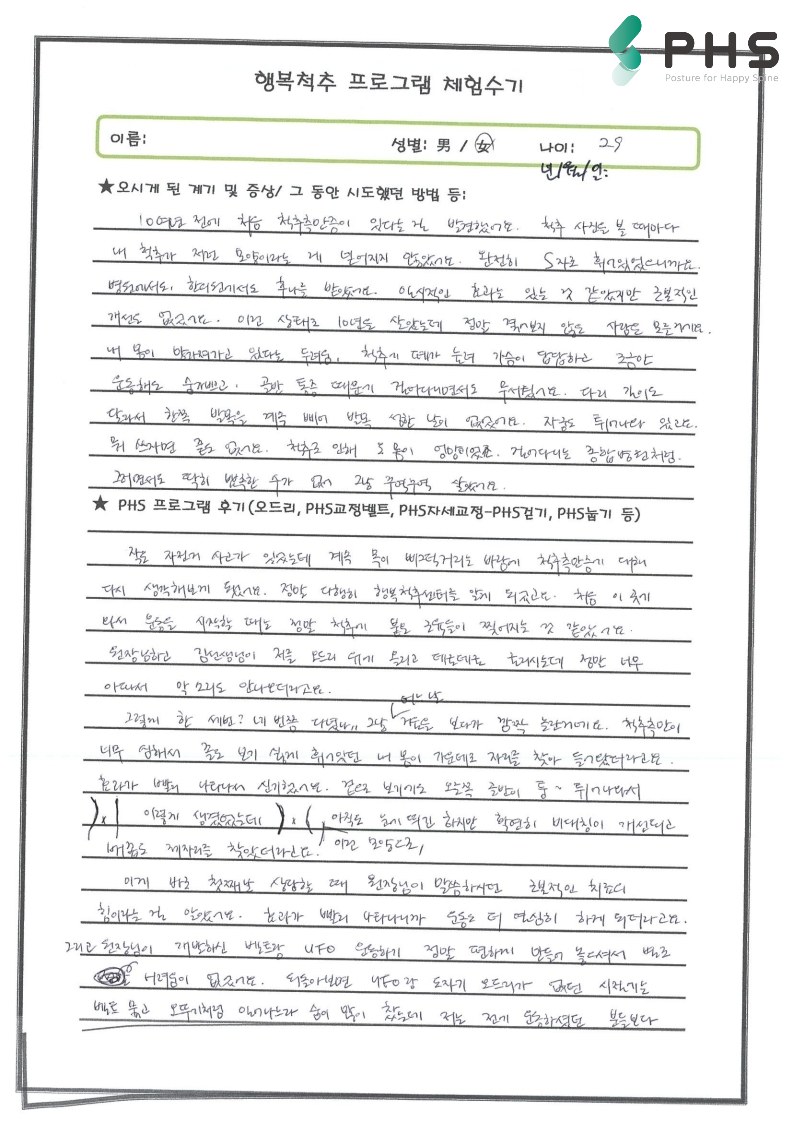 PHS
Posture for Happy Spine
행복척추 프로그램 체험수기
이름:
성별: 男 / 女
나이: 29
년/월/일:
★오시게 된 계기 및 증상/ 그 동안 시도했던 방법 등:
10여년 전에 처음 척추측만증이 있다는 걸 발견했어요. 척추 사진을 볼 때마다
내 척추가 저런 모양이라는 게 믿어지지 않았어요. 완전히 S자로 휘어있었으니까요.
병원에서도, 한의원에서도 추나를 받았어요. 일시적인 효과는 있는 것 같았지만 근본적인
개선은 없었어요. 이런 상태로 10년을 살았는데 정말 겪어보지 않은 사람은 모를거예요.
내 몸이 망가져가고 있다는 두려움, 척추가 폐가 눌려 가슴이 답답하고 조금만
운동해도 숨가쁘고, 골반 통증 때문에 걸어다니면서도 무서웠어요. 다리 길이도
달라서 한쪽 발목을 계속 삐어 반복 성한 날이 없었어요. 자궁도 튀어나와 있고요.
뭐 쓰자면 끝도 없어요. 척추로 인해 온 몸이 엉망이었죠. 걸어다니는 종합병원처럼.
그러면서도 딱히 방법이 없어 그냥 꾸역꾸역 살았어요.
★ PHS 프로그램 후기(오드리, PHS교정벨트, PHS자세교정-PHS걷기, PHS눕기 등)
작은 자전거 사고가 있었는데 계속 목이 삐그덕거리는 바람에 척추측만증에 대해
다시 생각해보게 됐어요. 정말 다행히 행복척추센터를 알게 되었고요. 처음 이 곳에
와서 운동을 시작할 때는 정말 척추에 붙은 근육들이 찢어지는 것 같았어요.
원장님하고 김선생님이 저를 오드리 위에 올리고 데굴데굴 굴리시는데 정말 너무
아파서 악 소리도 안나오더라고요.
그렇게 한 세번? 네번쯤 다녔나.. 그냥 어느 날 거울을 보다가 깜짝 놀란거예요. 척추측만이
너무 심해서 꼴도 보기 싫게 휘어있던 내 몸이 가운데로 자리를 찾아 들어왔더라고요.
효과가 빨리 나타나서 신기했어요. 겉으로 보기에도 오른쪽 골반이 툭~ 튀어나와서
이렇게 생겼었는데 아직도 눈에 띄긴 하지만 확연히 비대칭이 개선되고
이런 모양으로,
배꼽도 제자리를 찾았더라고요.
이게 바로 첫째날 상담할 때 원장님이 말씀하시던 근본적인 치료의
힘이라는 걸 알았어요. 효과가 빨리 나타나니까 운동도 더 열심히 하게 되더라고요.
그리고 원장님이 개발하신 벨트랑 UFO 운동하기 정말 편하게 만들어 놓으셔서 별로
어려움이 없었어요. 되돌아보면 UFO랑 도자기 오드리가 없던 시절에는
벨트 묶고 오뚜기처럼 일어나느라 숨이 많이 찼는데 저는 전에 운동하셨던 분들보다